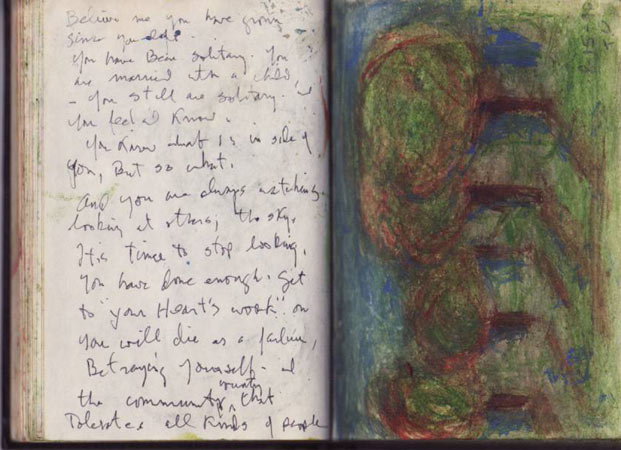 Believe me you have grown
since you left.
You have Been solitary. You
are married with a child,
- You still are solitary. and
You feel I Know.
You Know what is in side of
you, But so what.
And you are always watching,
looking at others, the sky.
It is time to stop looking.
You have done enough. Get
to "your Heart's work" or
you will die as a failure,
Betraying yourself. and
county
the community, that
Tolerates all kinds of people